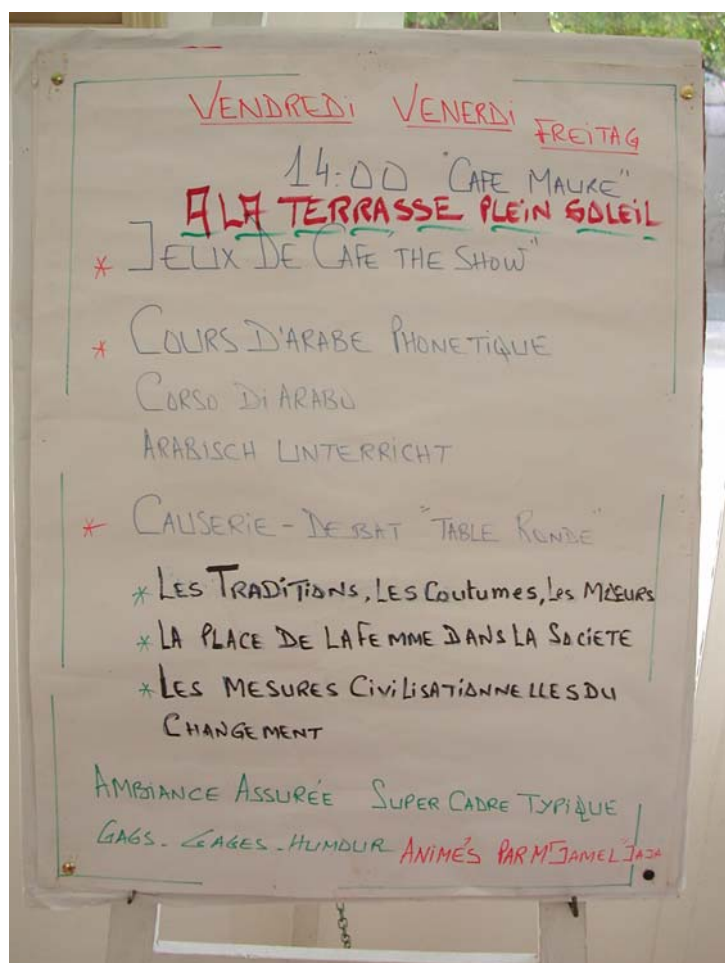 VENDREDI VENERDI FREITAG
14:00 "CAFE MAURE"
A LA TERRASSE PLEIN SOLEIL
* JEUX DE CAFE "THE SHOW"
* COURS D'ARABE PHONETIQUE
CORSO DI ARABO
ARABISCH UNTERRICHT
* CAUSERIE - DEBAT "TABLE RONDE"
* LES TRADITIONS, LES COUTUMES, LES MOEURS
* LA PLACE DE LA FEMME DANS LA SOCIETE
* LES MESURES CIVILISATIONNELLES DU
CHANGEMENT
AMBIANCE ASSURÉE SUPER CADRE TYPIQUE
GAGS - GAGES - HUMOUR ANIMÉS PAR M' JAMEL "JAJA